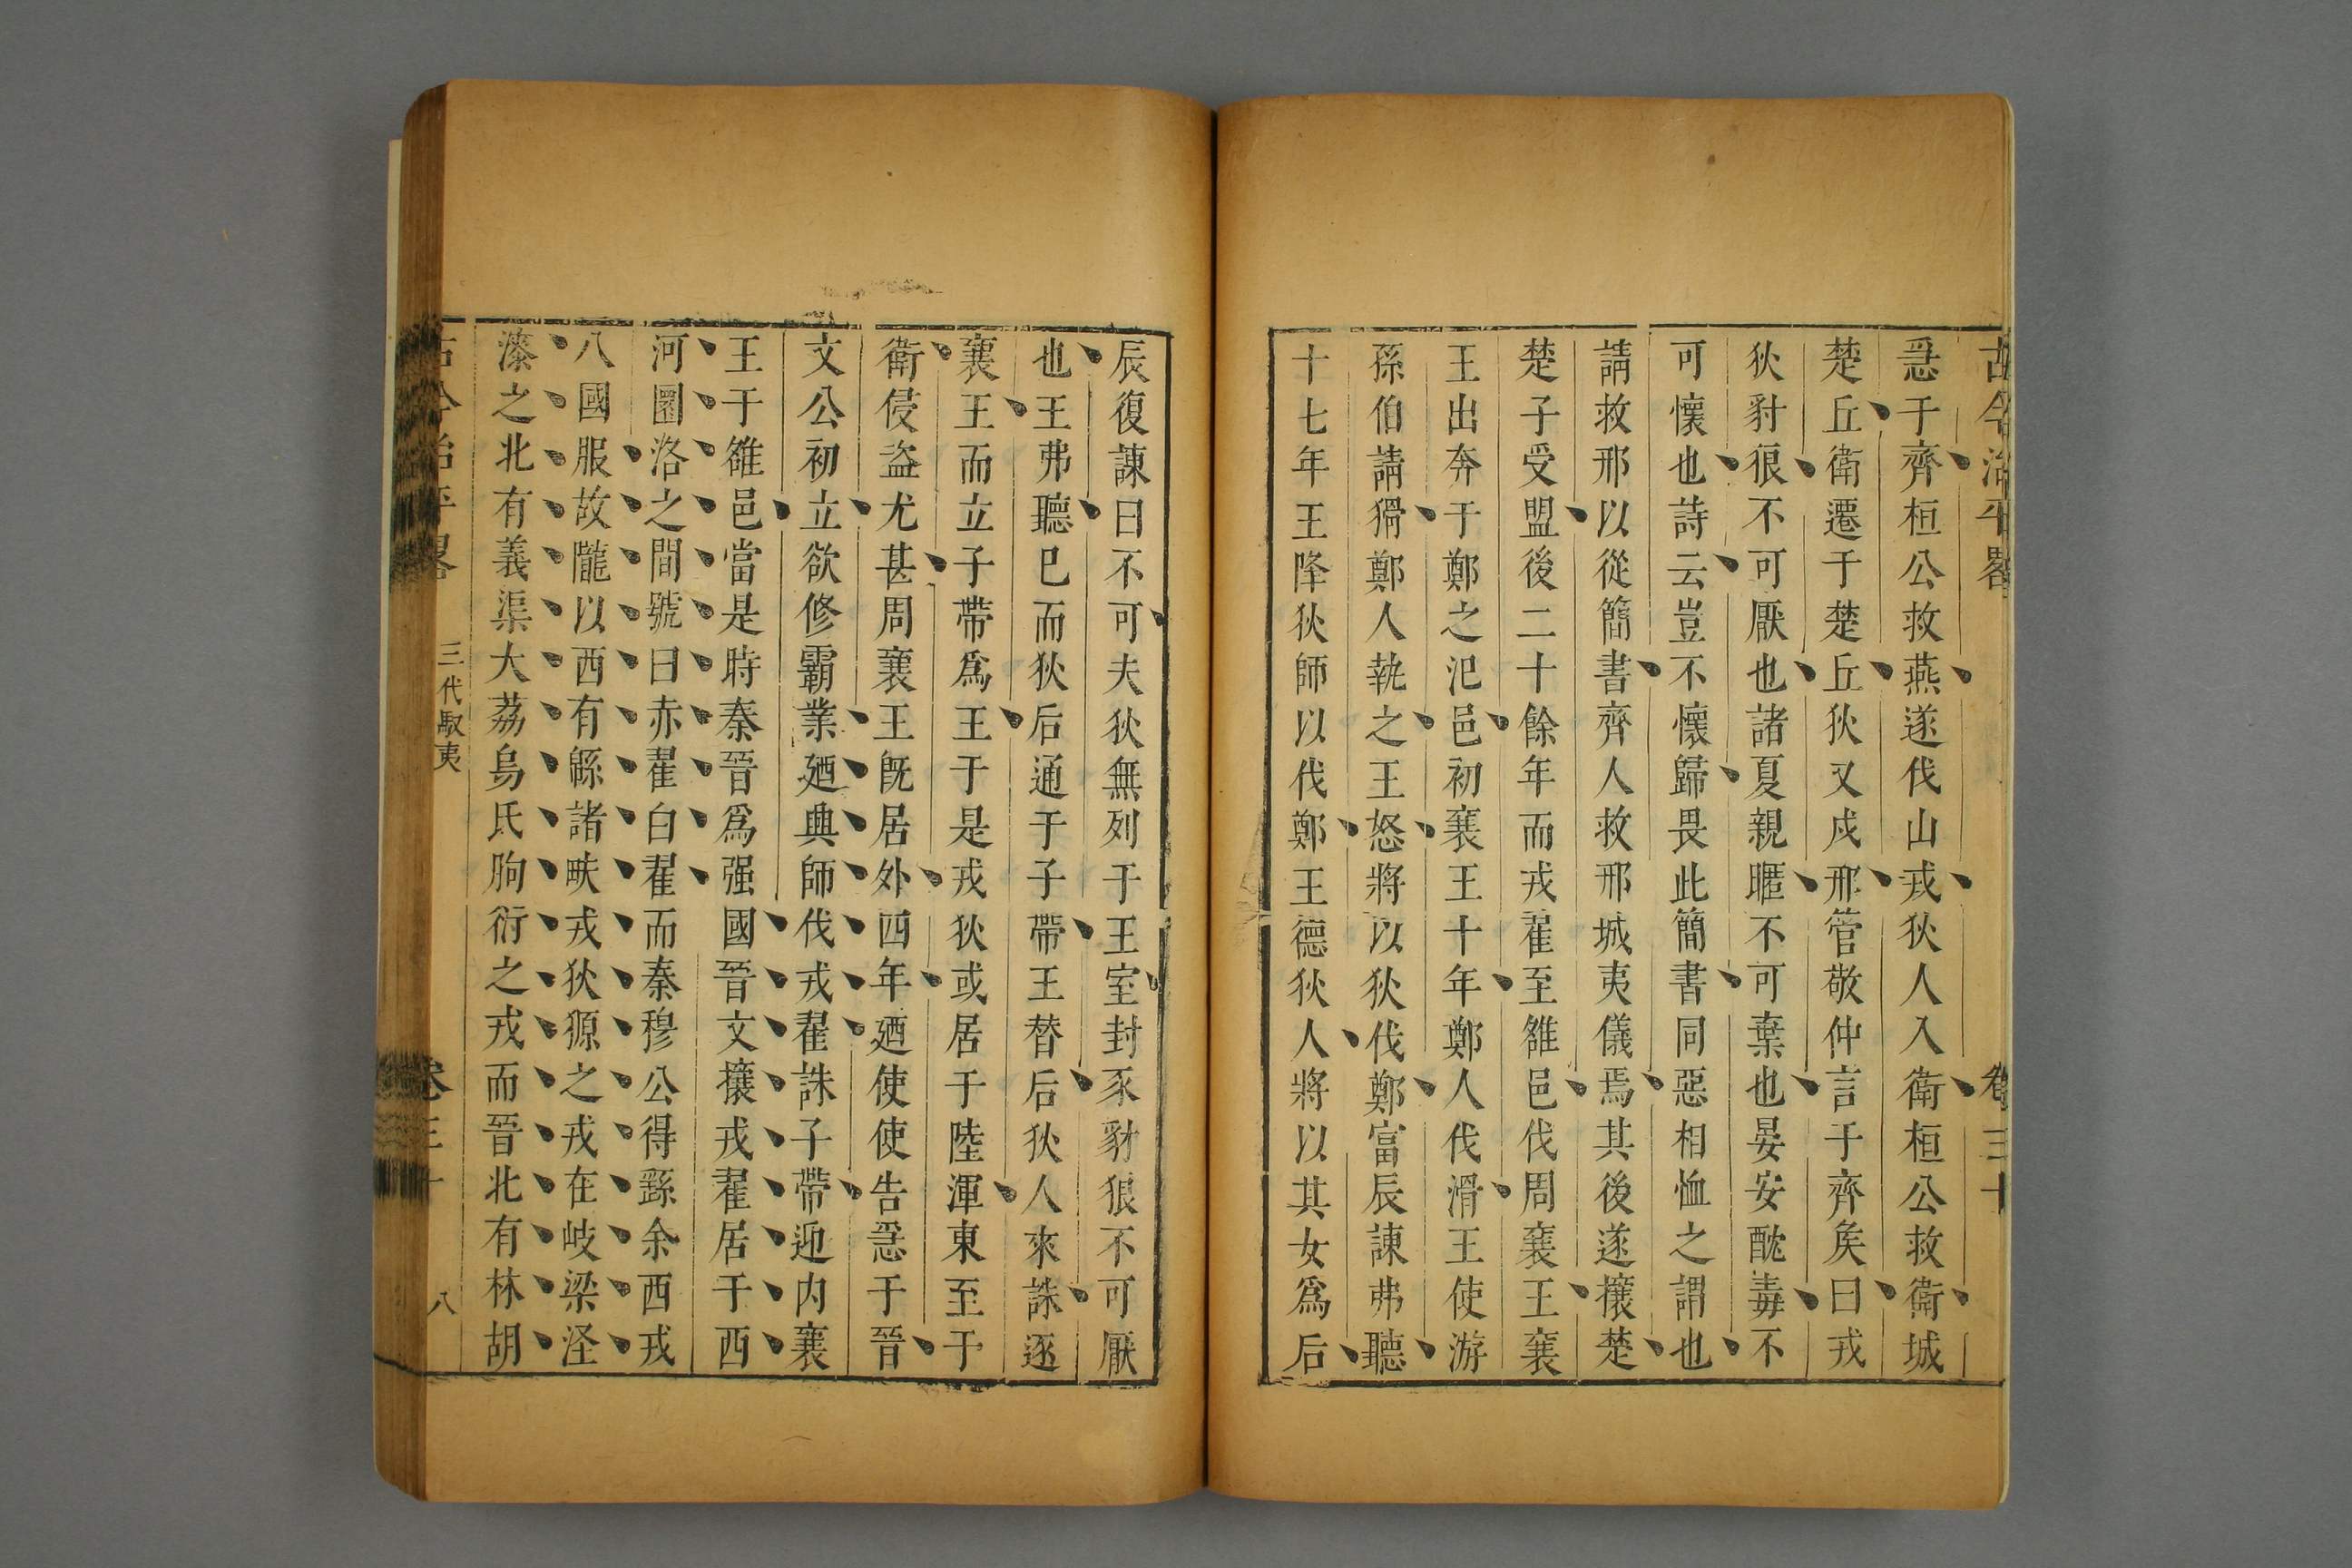 古今治平畧 卷三十
急于齊桓公救燕遂伐山戎狄人入衛桓公救衛城
楚丘衛遷于楚丘狄又戍邢管敬仲言于齊矦曰戎
狄豺很不可厭也諸夏親暱不可棄也晏安酖毒不
可懷也詩云豈不懷歸畏此簡書同惡相恤之謂也
請救邢以從簡書齊人救邢城夷儀焉其後遂攘楚
楚子受盟後二十餘年而戎翟至雒邑伐周襄王襄
王出奔于鄭之汜邑初襄王十年鄭人伐滑王使游
孫伯請猾鄭人執之王怒將以狄伐鄭富辰諫弗聽
十七年王降狄師以伐鄭王德狄人將以其女爲后
辰復諫曰不可夫狄無列于王室封豕豺狼不可厭
也王弗聽巳而狄后通于子帶王替后狄人來誅逐
襄王而立子帶爲王于是戎狄或居于陸渾東至于
衛侵盜尤甚周襄王旣居外四年廼使使告急于晉
文公初立欲修霸業廼興師伐戎翟誅子帶迎内襄
王于雒邑當是時秦晉爲强國晉文攘戎翟居于西
河圁洛之間號曰赤翟白翟而秦穆公得繇余西戎
八國服故隴以西有緜諸畎戎狄獂之戎在岐梁涇
漆之北有義渠大荔烏氏朐衍之戎而晉北有林胡
古今治平畧 三代馭夷 卷三十 八